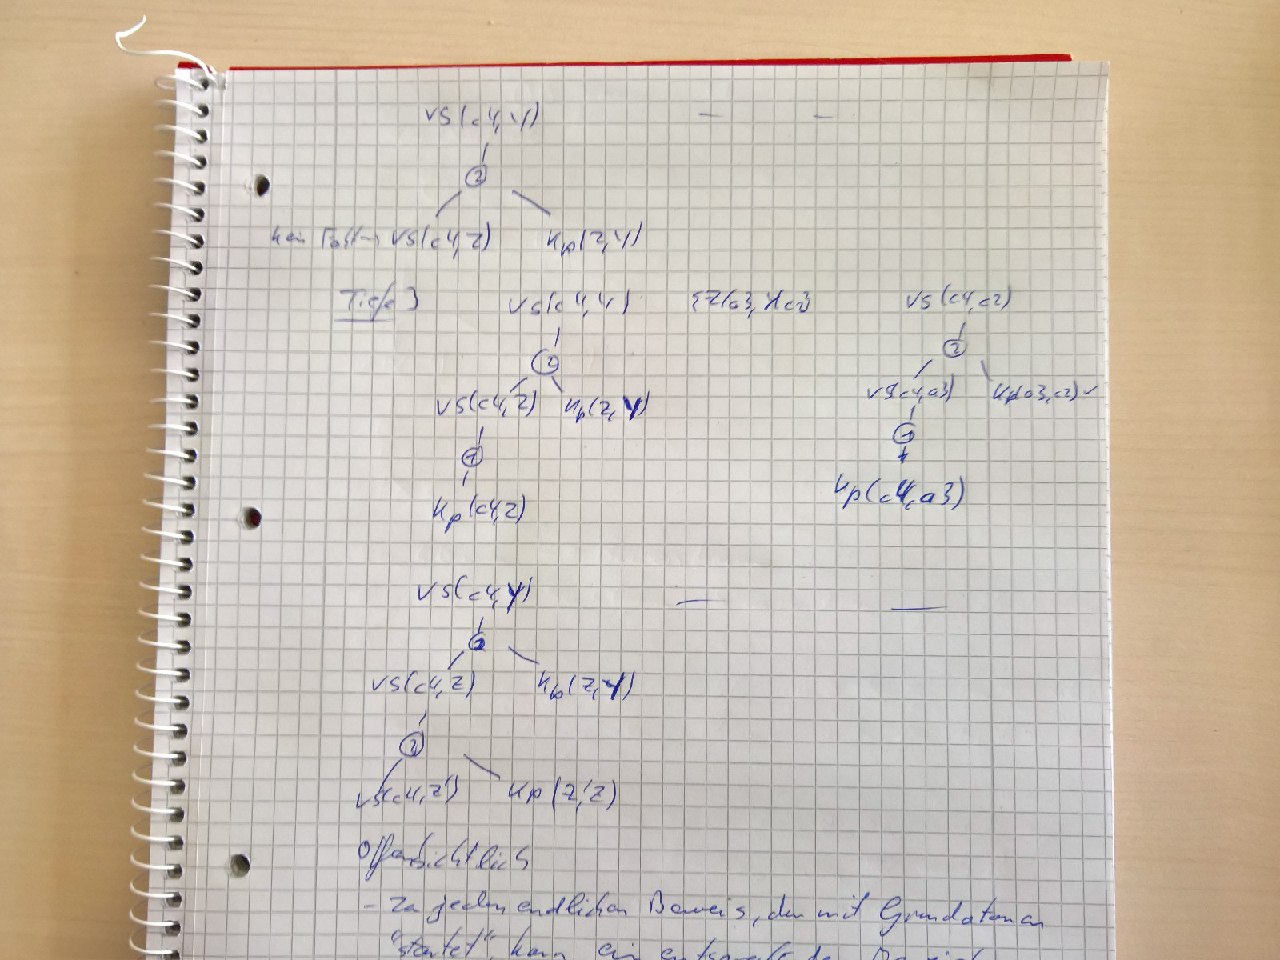 vs(c4,Y) — —
②
kein Fakt → vs(c4,Z) kp(Z,Y)
Tiefe 3 vs(c4,Y) {Z/a3, Y/c2} vs(c4,c2)
② ②
vs(c4,Z) kp(Z,Y) vs(c4,a3) kp(a3,c2) ✓
① ①
kp(c4,Z) kp(c4,a3)
vs(c4,Y) — —
②
vs(c4,Z) kp(Z,Y)
②
vs(c4,Z') kp(Z',Z)
Offensichtlich
- Zu jedem endlichen Beweis, der mit Grundatomen
"startet", kann ein